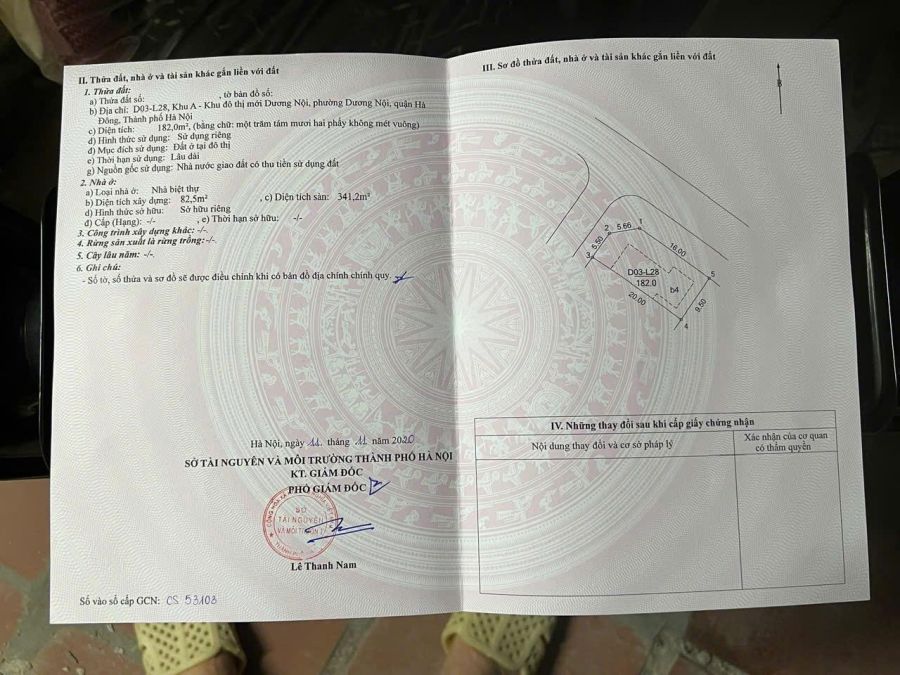 II. Thửa đất, nhà ở và tài sản khác gắn liền với đất
1. Thửa đất:
a) Thửa đất số: , tờ bản đồ số:
b) Địa chỉ: D03-L28, Khu A - Khu đô thị mới Dương Nội, phường Dương Nội, quận Hà
Đông, Thành phố Hà Nội
c) Diện tích: 182,0m², (bằng chữ: một trăm tám mươi hai phẩy không mét vuông)
d) Hình thức sử dụng: Sử dụng riêng
đ) Mục đích sử dụng: Đất ở tại đô thị
e) Thời hạn sử dụng: Lâu dài
g) Nguồn gốc sử dụng: Nhà nước giao đất có thu tiền sử dụng đất
2. Nhà ở:
a) Loại nhà ở: Nhà biệt thự
b) Diện tích xây dựng: 82,5m² , c) Diện tích sàn: 341,2m²
d) Hình thức sở hữu: Sở hữu riêng
đ) Cấp (Hạng): -/- , e) Thời hạn sở hữu: -/-
3. Công trình xây dựng khác: -/-.
4. Rừng sản xuất là rừng trồng:-/-.
5. Cây lâu năm: -/-.
6. Ghi chú:
- Số tờ, số thửa và sơ đồ sẽ được điều chỉnh khi có bản đồ địa chính chính quy.
Hà Nội, ngày 11 tháng 11 năm 2020
SỞ TÀI NGUYÊN VÀ MÔI TRƯỜNG THÀNH PHỐ HÀ NỘI
KT. GIÁM ĐỐC
PHÓ GIÁM ĐỐC
SỞ
TÀI NGUYÊN
VÀ MÔI TRƯỜNG
Lê Thanh Nam
Số vào sổ cấp GCN: CS 53103
III. Sơ đồ thửa đất, nhà ở và tài sản khác gắn liền với đất
B
2 5.66 1
5.50
3
16.00
5
D03-L28
182.0
b4
20.00
9.50
4
IV. Những thay đổi sau khi cấp giấy chứng nhận
Nội dung thay đổi và cơ sở pháp lý
Xác nhận của cơ quan
có thẩm quyền